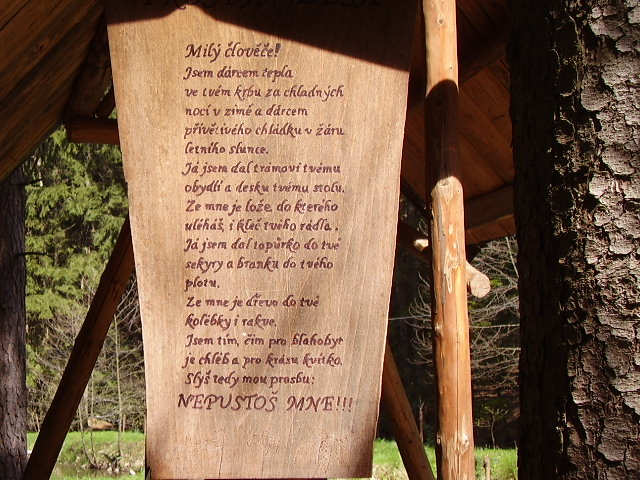 Milý člověče!
Jsem dárcem tepla
ve tvém krbu za chladných
nocí v zimě a dárcem
přívětivého chládku v žáru
letního slunce.
Já jsem dal trámoví tvému
obydlí a desku tvému stolu.
Ze mne je lože, do kterého
uléháš, i kleč tvého rádla.
Já jsem dal topůrko do tvé
sekyry a branku do tvého
plotu.
Ze mne je dřevo do tvé
kolébky i rakve.
Jsem tím, čím pro blahobyt
je chléb a pro krásu kvítko.
Slyš tedy mou prosbu:
NEPUSTOŠ MNE!!!